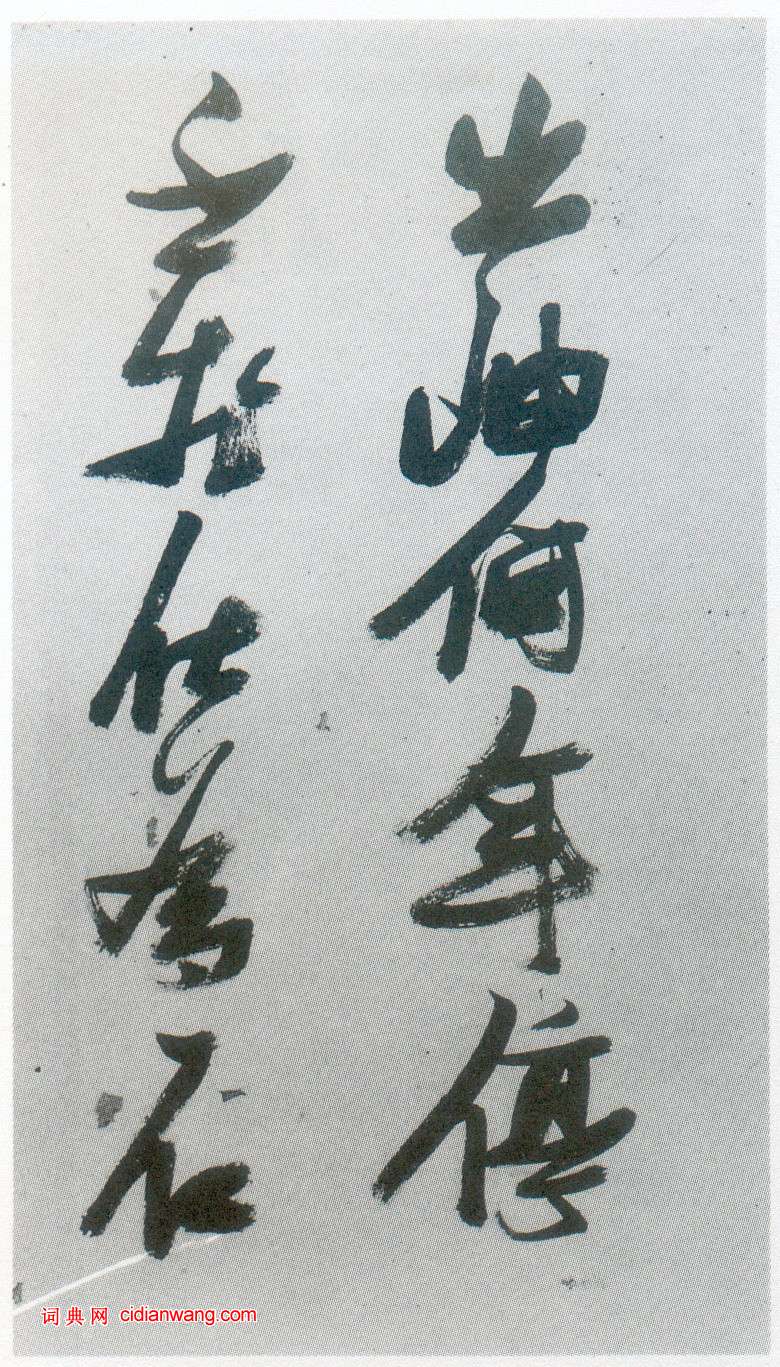 出岫何年停
化為石
词典网 cidianwang.com